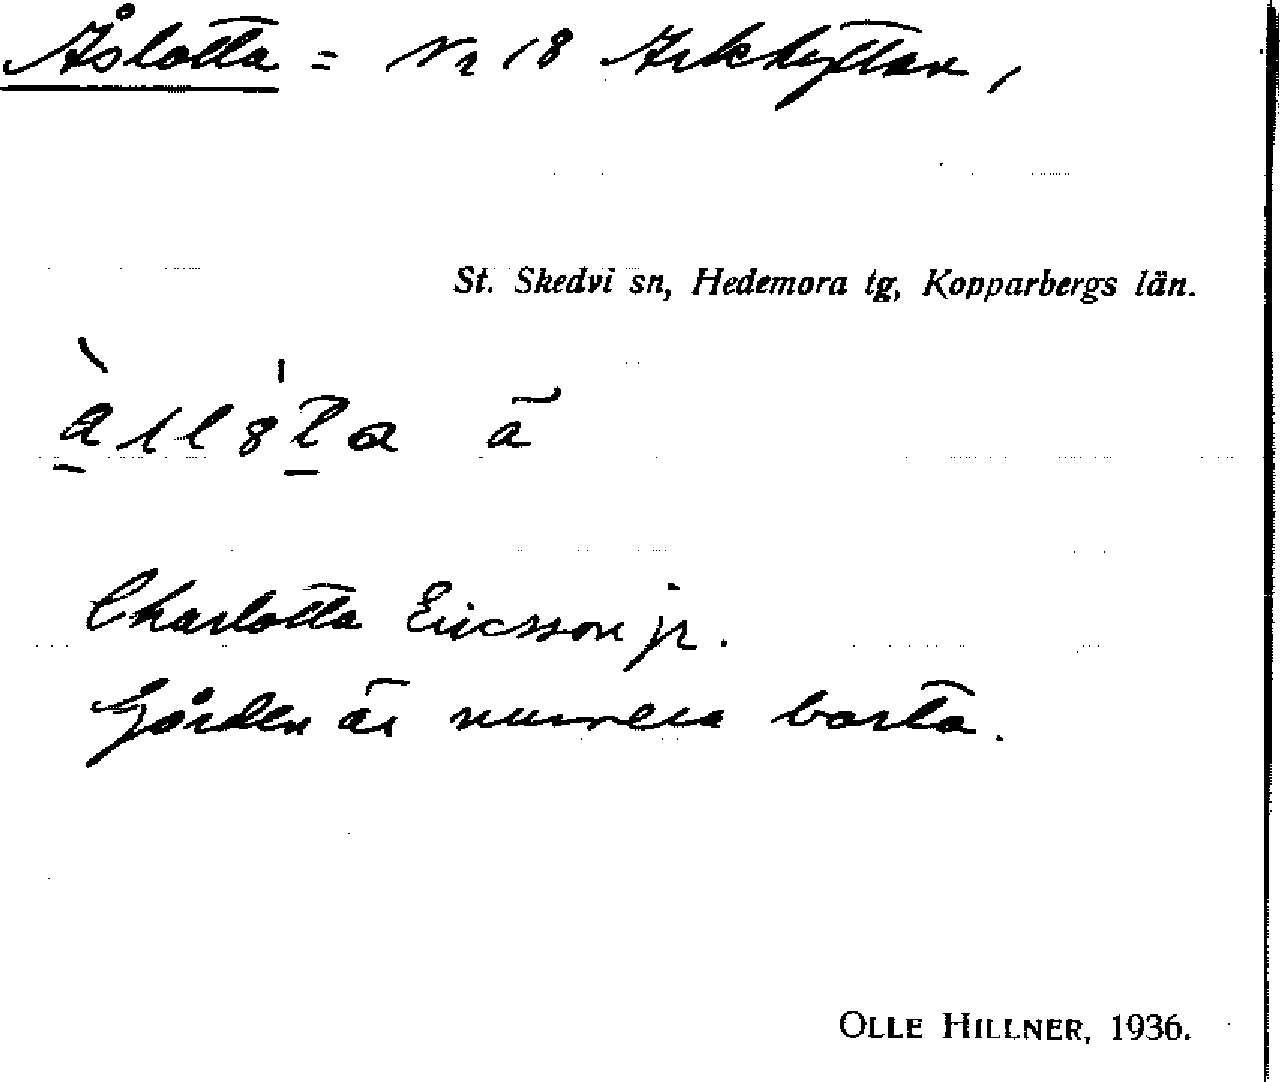 Åslotta = Nr 18 Arkhyttan,
St. Skedvi sn, Hedemora tg, Kopparbergs län.
Charlotta Ericsson jr.
Gården är numera borta.
OLLE HILLNER, 1936.